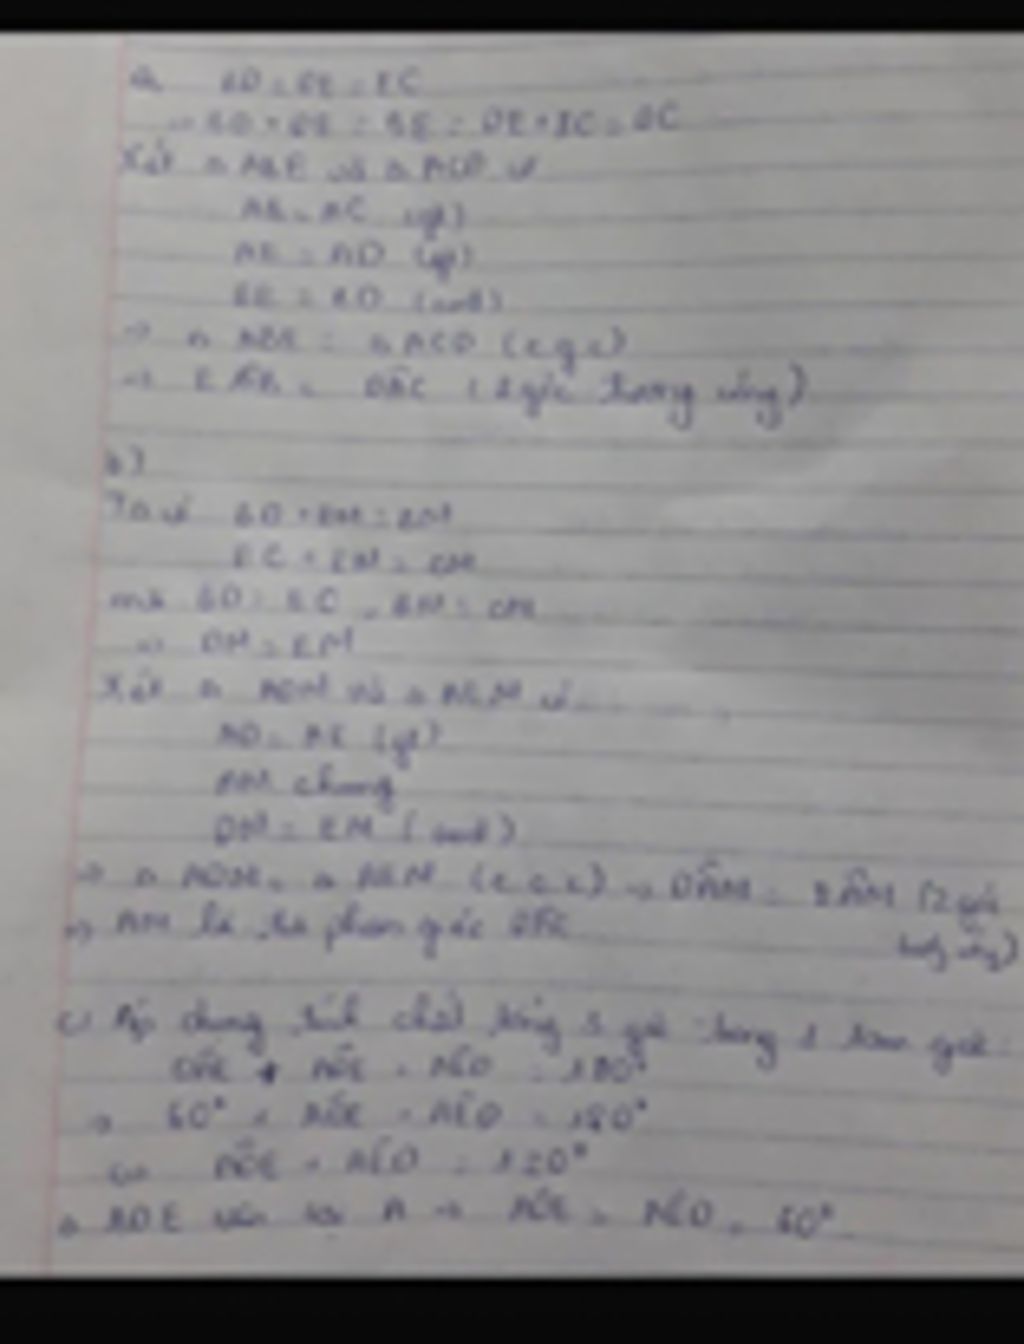 a BD = DE = EC
→ BD + DE = BE = DE + EC = DC
Xét Δ ABE và Δ ACD có
AB = AC (gt)
AE = AD (gt)
BE = CD (cmt)
→ Δ ABE = Δ ACD (c g c)
→ = (2 góc tương ứng)
b)
Ta có BD + DM = BM
EC + EM = CM
mà BD = EC, BM = CM
→ DM = EM
Xét Δ ADM và Δ AEM có
AD = AE (gt)
AM chung
DM = EM (cmt)
→ Δ ADM = Δ AEM (c c c) → DÂM = EÂM (2 góc
tương ứng)
→ AM là tia phan giác DÂE
c) Áp dụng tính chất tổng 3 góc trong 1 tam giác:
DÂE + + = 180°
→ 60° + + = 180°
+ = 120°
Δ ADE cân tại A → = = 60°